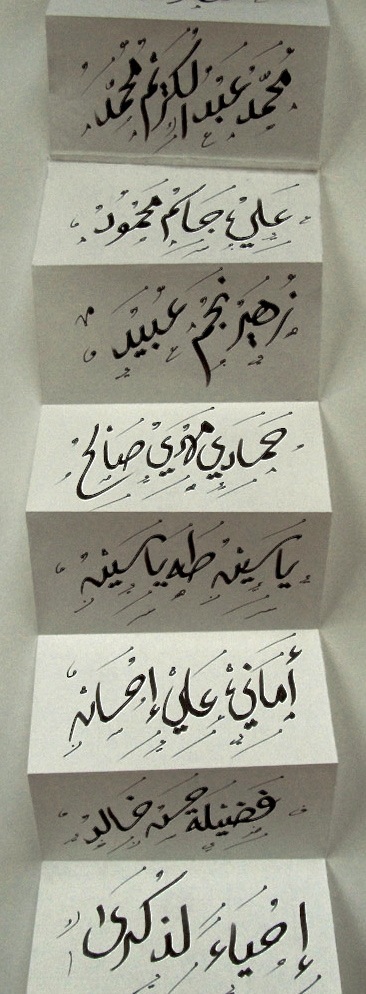 محمد عبد الكريم محمد
علي حاكم محمود
زهير نجم عبيد
حمادي مهدي صالح
ياسين طه ياسين
أماني علي إحسان
فضيلة حسن خالد
إحياء لذكرى